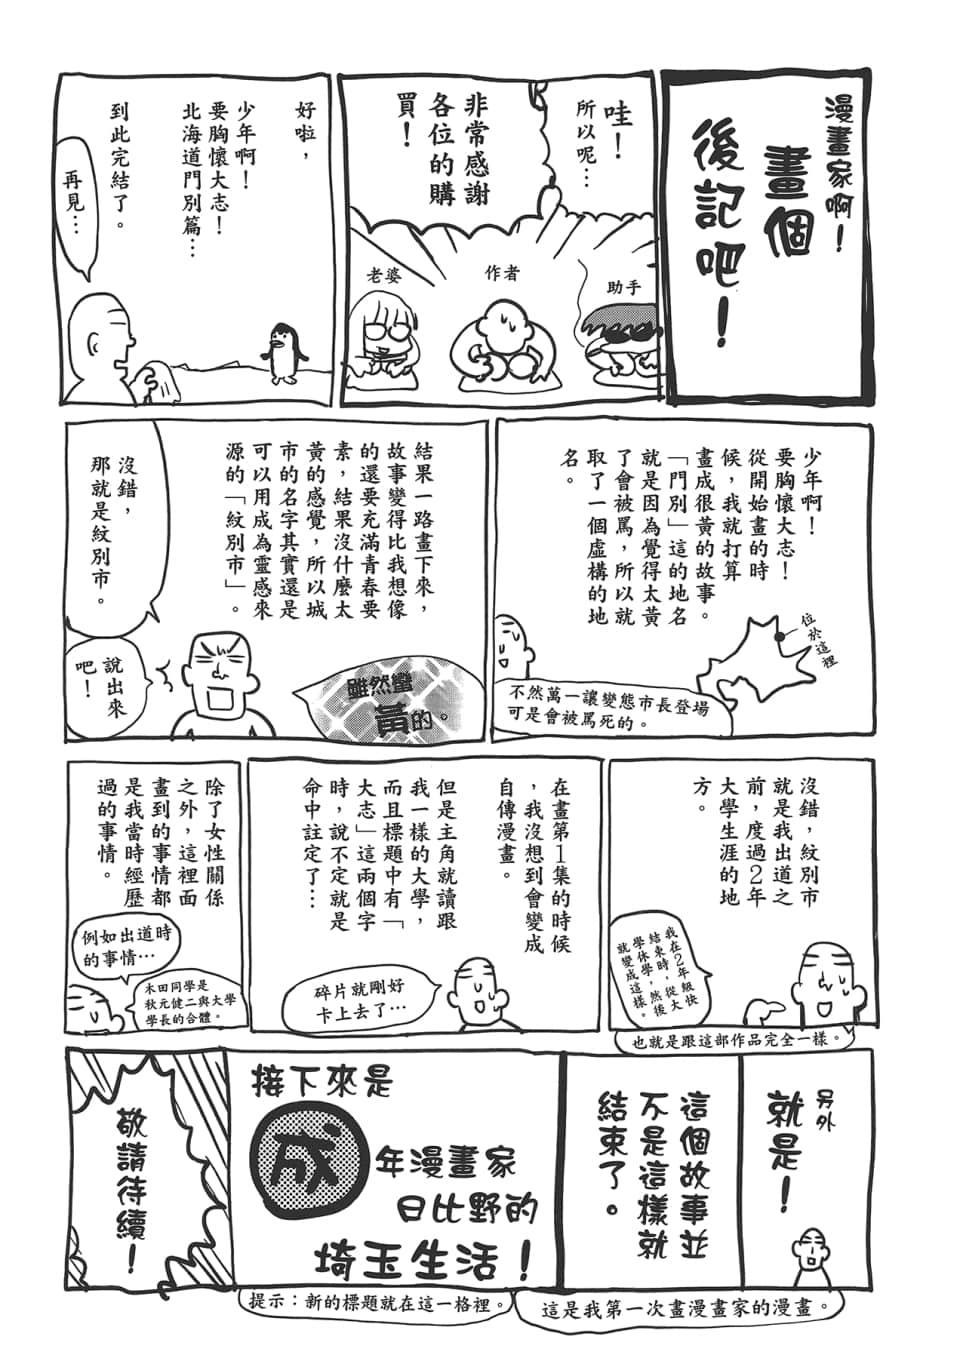 漫畫家啊！
畫個
後記吧！
哇！
所以呢…
非常感謝
各位的購
買！
助手
作者
老婆
好啦，
少年啊！
要胸懷大志！
北海道門別篇…
到此完結了。
再見…
少年啊！
要胸懷大志！
從開始畫的時
候，我就打算
畫成很黃的故事。
「門別」這的地名
就是因為覺得太黃
了會被罵，所以就
取了一個虛構的地
名。
位於這裡
不然萬一讓變態市長登場
可是會被罵死的。
結果一路畫下來，
故事變得比我想像
的還要充滿青春要
素，結果沒什麼太
黃的感覺，所以城
市的名字其實還是
可以用成為靈感來
源的「紋別市」。
雖然蠻
黃的。
說出來
吧！
沒錯，
那就是紋別市。
沒錯，紋別市
就是我出道之
前，度過2年
大學生涯的地
方。
我在2年級快
結束時，從大
學休學，然後
就變成這樣。
也就是跟這部作品完全一樣。
在畫第1集的時候
，我沒想到會變成
自傳漫畫。
但是主角就讀跟
我一樣的大學，
而且標題中有「
大志」這兩個字
時，說不定就是
命中註定了…
碎片就剛好
卡上去了…
除了女性關係
之外，這裡面
畫到的事情都
是我當時經歷
過的事情。
例如出道時
的事情…
木田同學是
秋元健二與大學
學長的合體。
另外
就是！
這個故事並
不是這樣就
結束了。
這是我第一次畫漫畫家的漫畫。
接下來是
成
年漫畫家
日比野的
埼玉生活！
提示：新的標題就在這一格裡。
敬請待續！